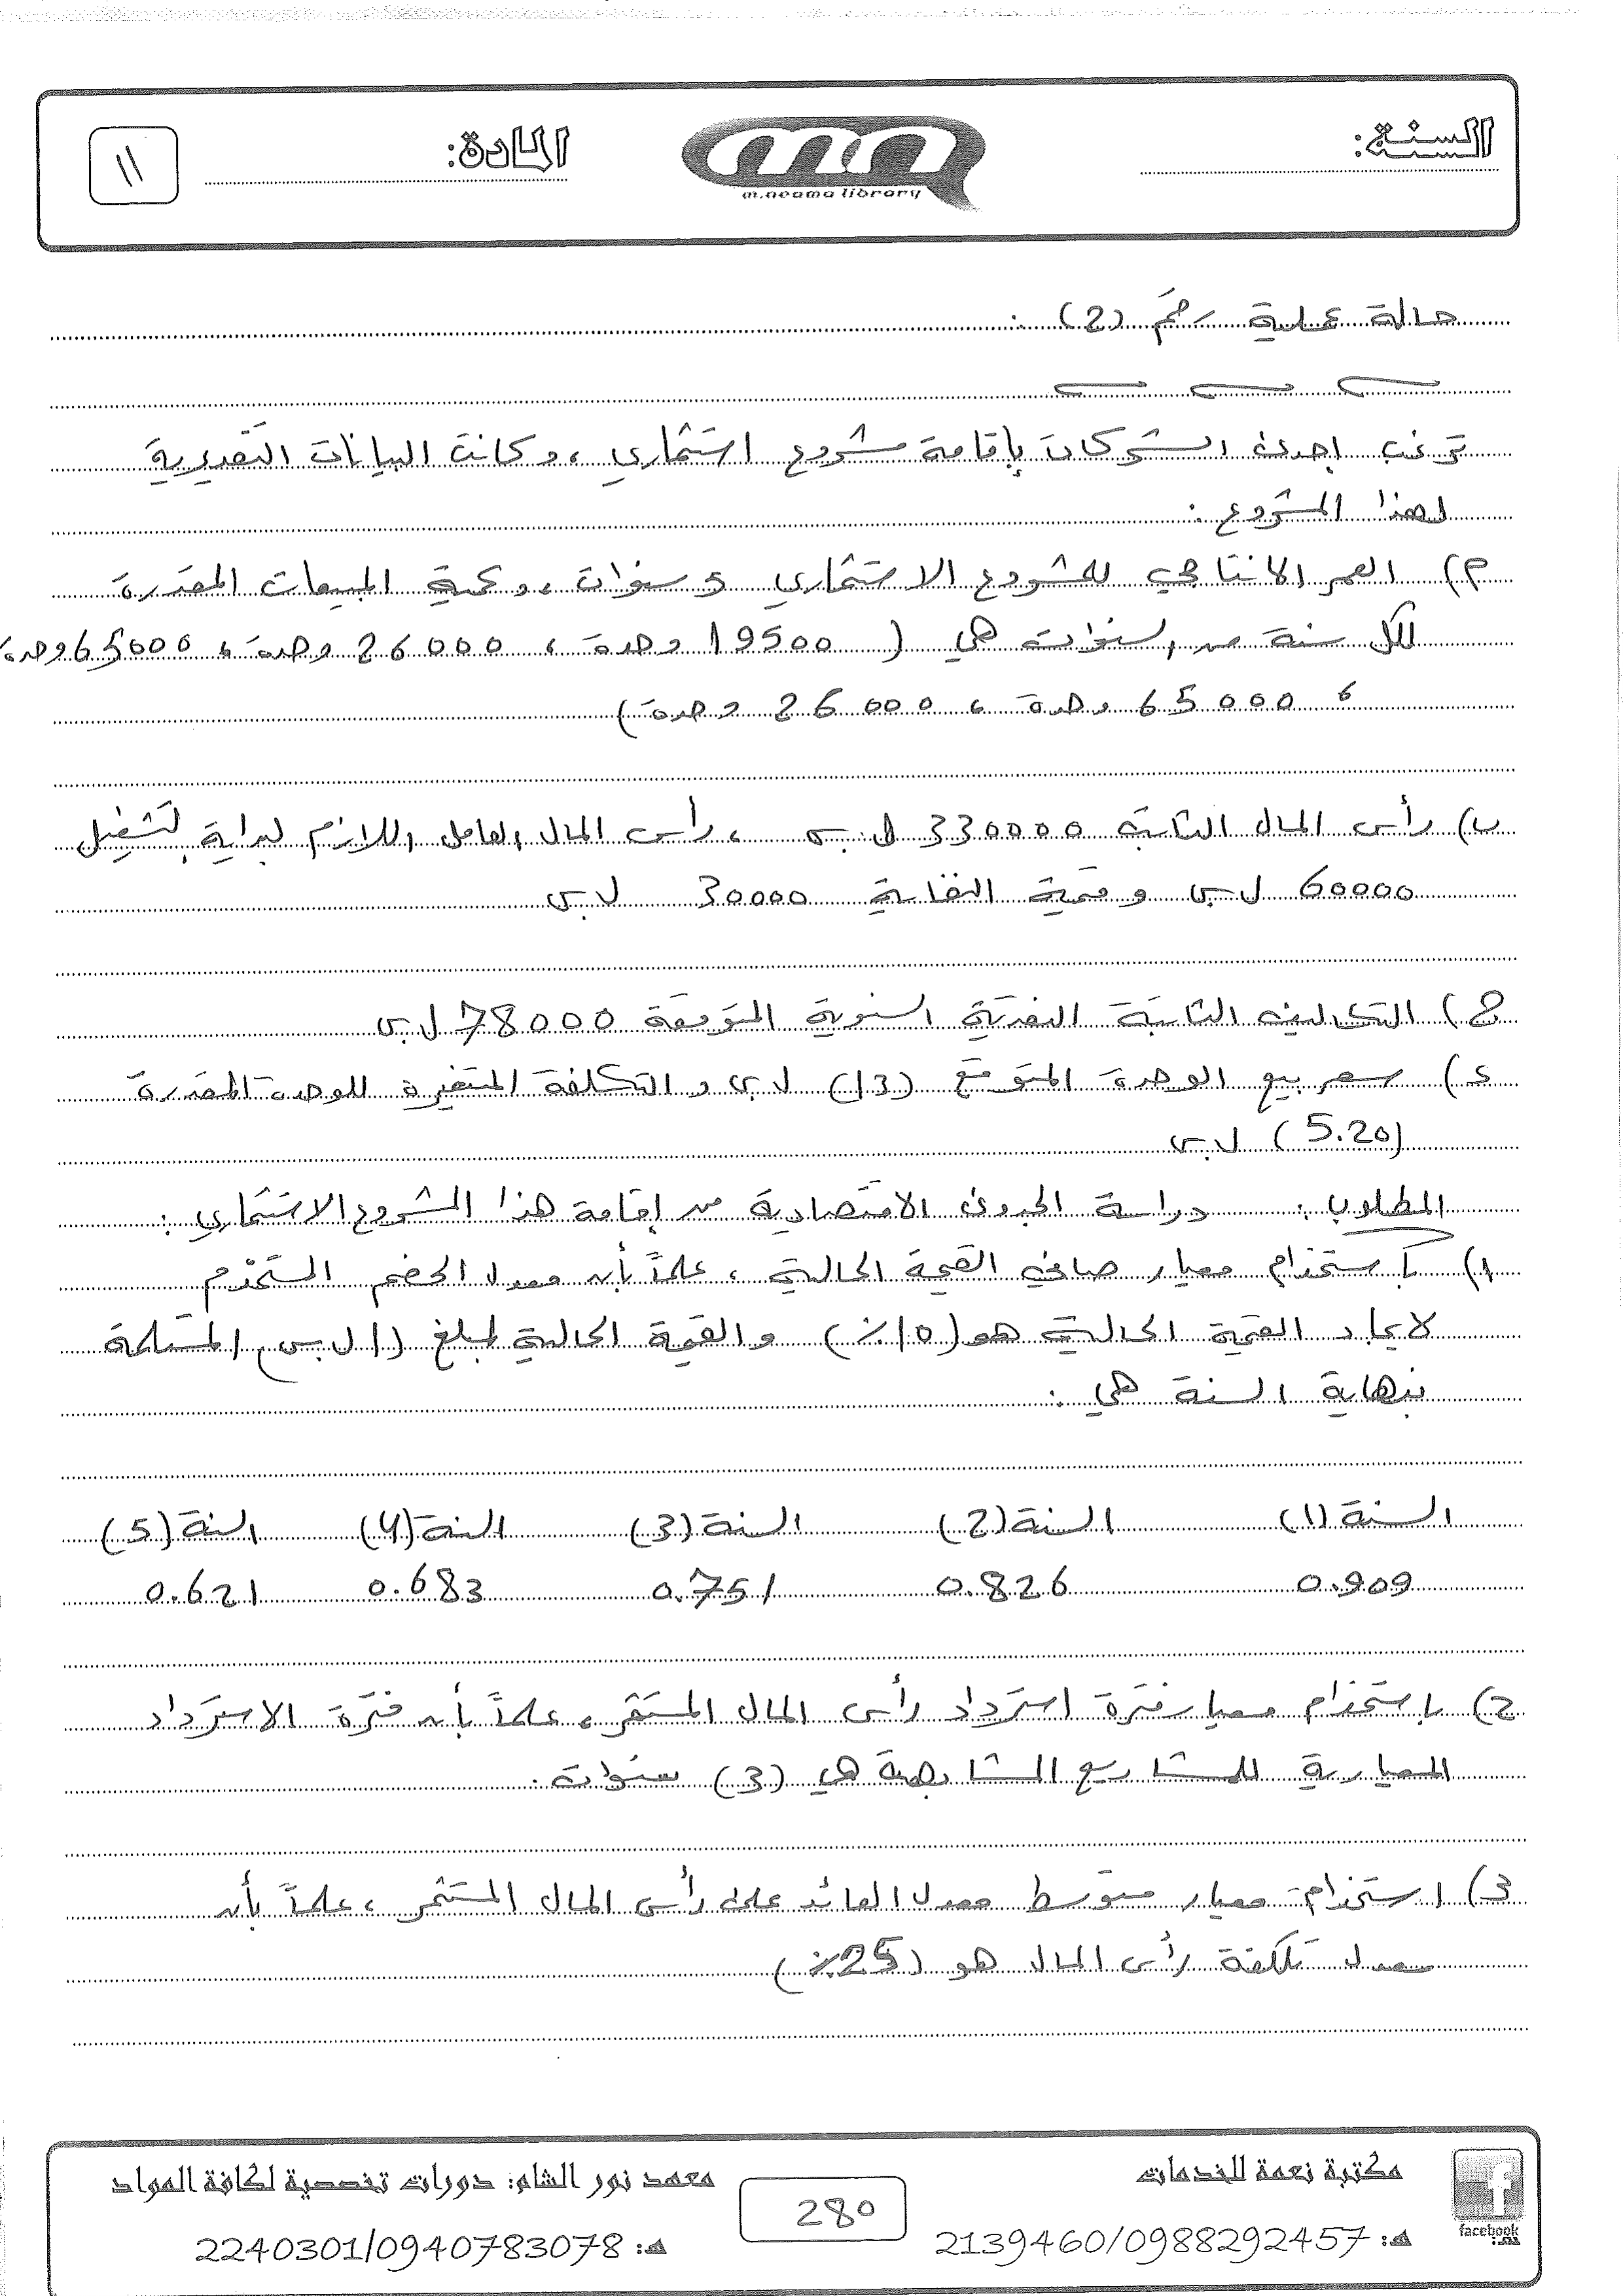 السنة:
m.neama library
المادة:
١١
حالة عملية رقم (2) :
ترغب إحدى الشركات بإقامة مشروع استثماري ، وكانت البيانات التقديرية
لهذا المشروع :
م) العمر الانتاجي للمشروع الاستثماري 5 سنوات ، وكمية المبيعات المقدرة
لكل سنة من السنوات هي ( 19500 وحدة ، 26000 وحدة ، 65000 وحدة
، 65000 وحدة ، 26000 وحدة )
ب) رأس المال الثابتة 330000 ل.س ، رأس المال العامل اللازم لبداية التشغيل
60000 ل.س و قيمة النفاية 30000 ل.س
ج) التكاليف الثابتة النقدية السنوية المتوقعة 78000 ل.س
د) سعر بيع الوحدة المتوقع (13) ل.س و التكلفة المتغيرة للوحدة المقدرة
(5.20) ل.س
المطلوب : دراسة الجدوى الاقتصادية من إقامة هذا المشروع الاستثماري :
1) باستخدام معيار صافي القيمة الحالية ، علماً بأن معدل الخصم المستخدم
لايجاد القيمة الحالية هو (10٪) والقيمة الحالية لمبلغ (1 ل.س) المستلمة
بنهاية السنة هي :
السنة (1) السنة (2) السنة (3) السنة (4) السنة (5)
0.909 0.826 0.751 0.683 0.621
2) باستخدام معيار فترة استرداد رأس المال المستثمر ، علماً بأن فترة الاسترداد
المعيارية للمشاريع المشابهة هي (3) سنوات .
3) استخدام معيار متوسط معدل العائد على رأس المال المستثمر ، علماً بأن
معدل تكلفة رأس المال هو (25٪)
مكتبة نعمة للخدمات
هـ: 2139460/0988292457
facebook
280
معهد نور الشام: دورات تخصصية لكافة المواد
هـ: 2240301/0940783078